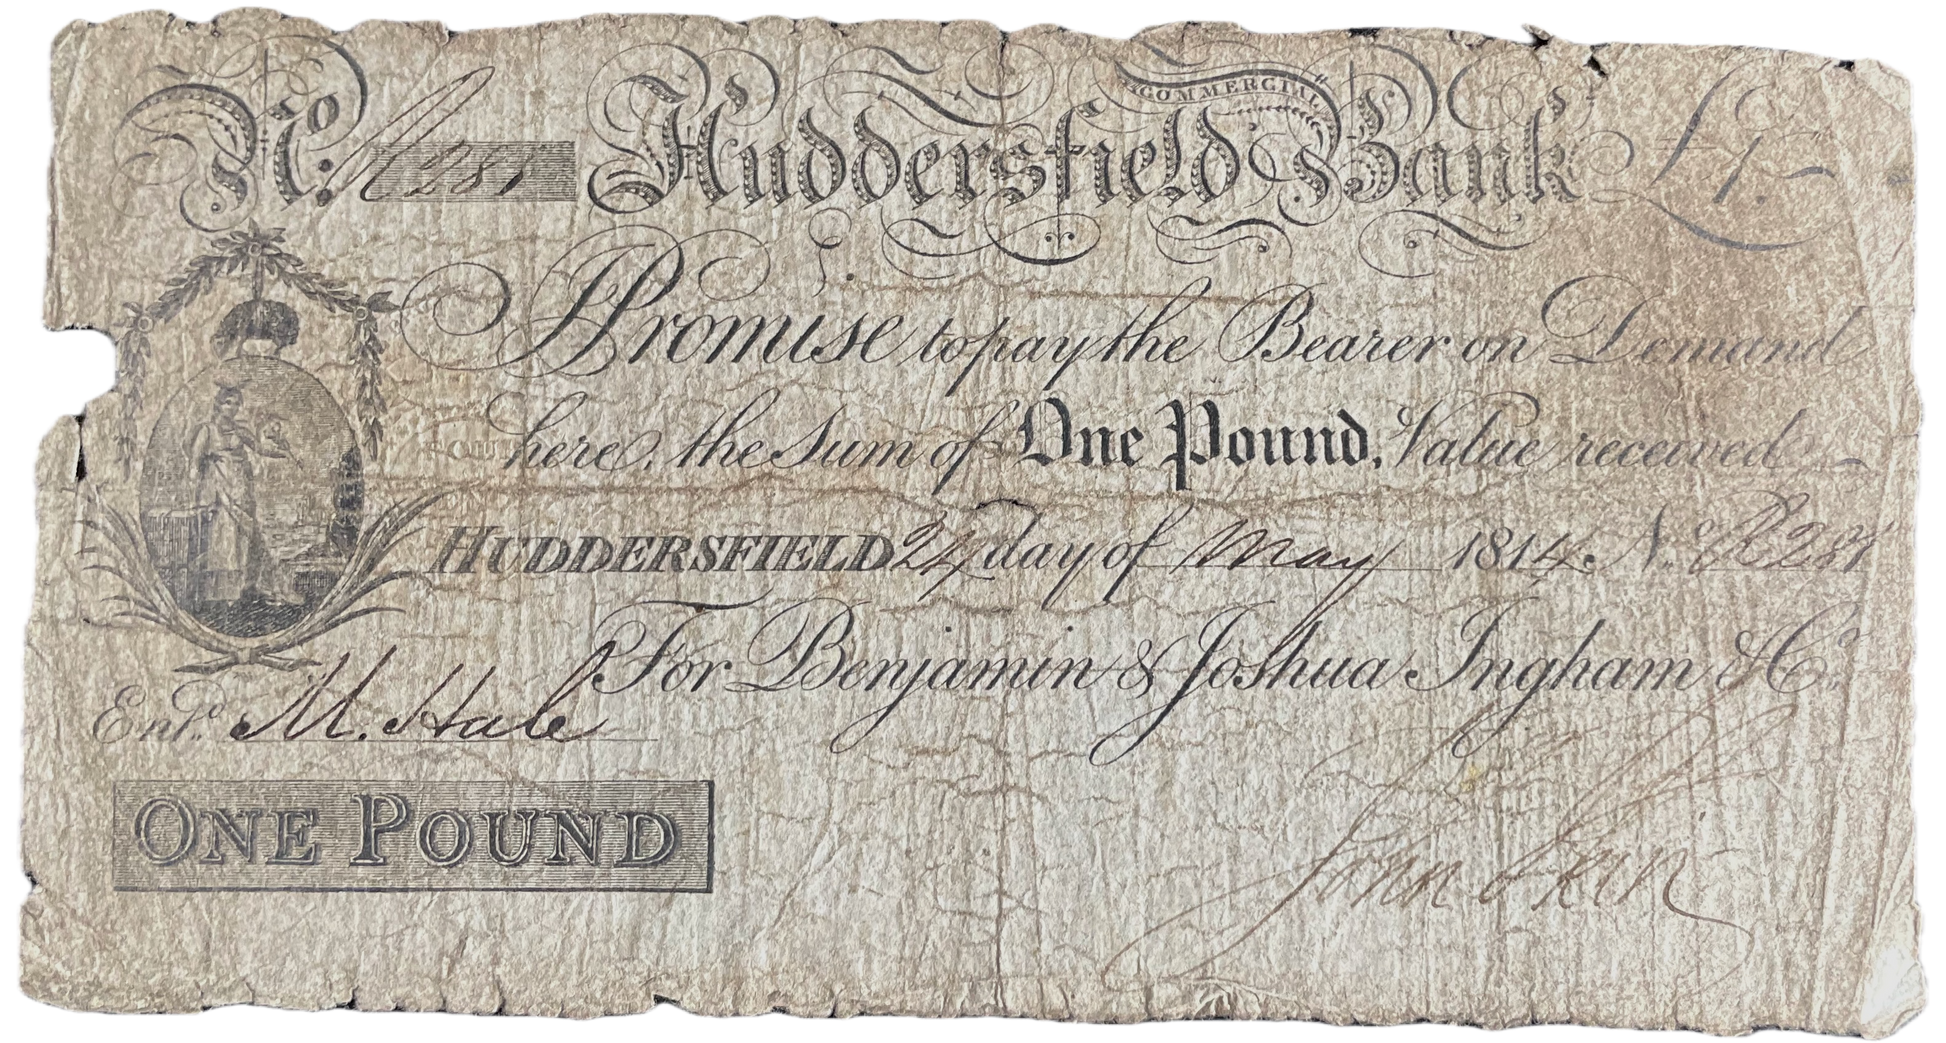 No. 281 Huddersfield COMMERCIAL Bank £1.
I Promise to pay the Bearer on Demand
here, the Sum of One Pound, Value received
HUDDERSFIELD 24 day of May 1814 No. 281
For Benjamin & Joshua Ingham & Co.
Entd. M. Hale
ONE POUND
John